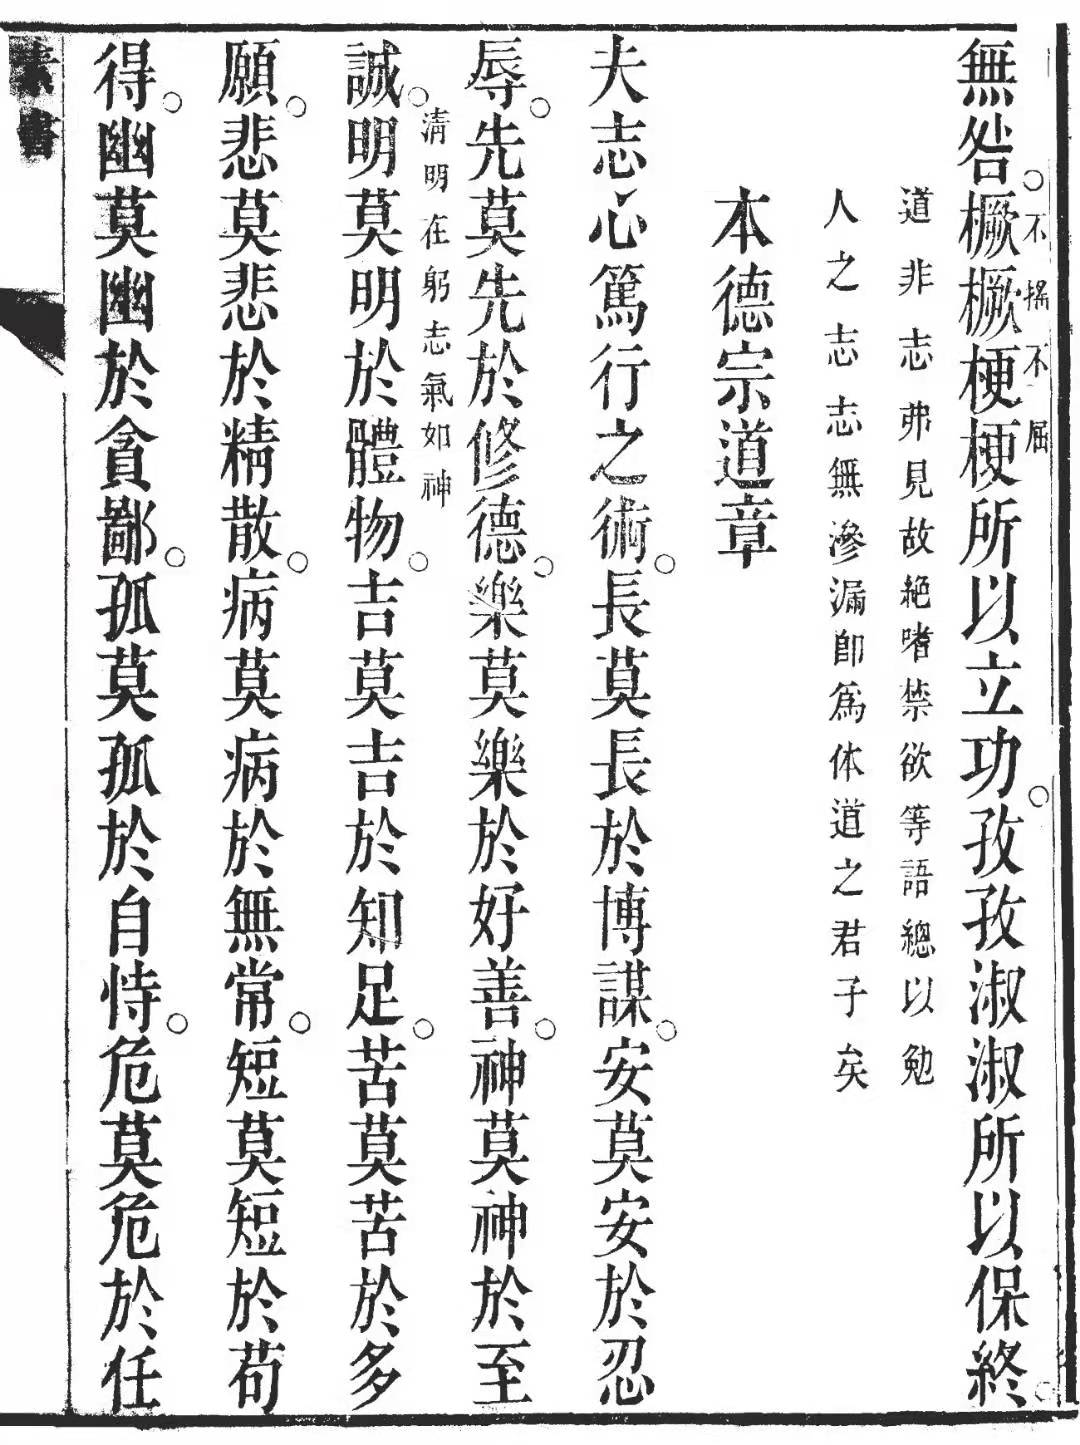 無咎橛橛梗梗所以立功孜孜淑淑所以保終
不搖不屈
道非志弗見故絕嗜禁欲等語總以勉
人之志志無滲漏即爲体道之君子矣
本德宗道章
夫志心篤行之術長莫長於博謀安莫安於忍
辱先莫先於修德樂莫樂於好善神莫神於至
誠明莫明於體物吉莫吉於知足苦莫苦於多
清明在躬志氣如神
願悲莫悲於精散病莫病於無常短莫短於苟
得幽莫幽於貪鄙孤莫孤於自恃危莫危於任
素書